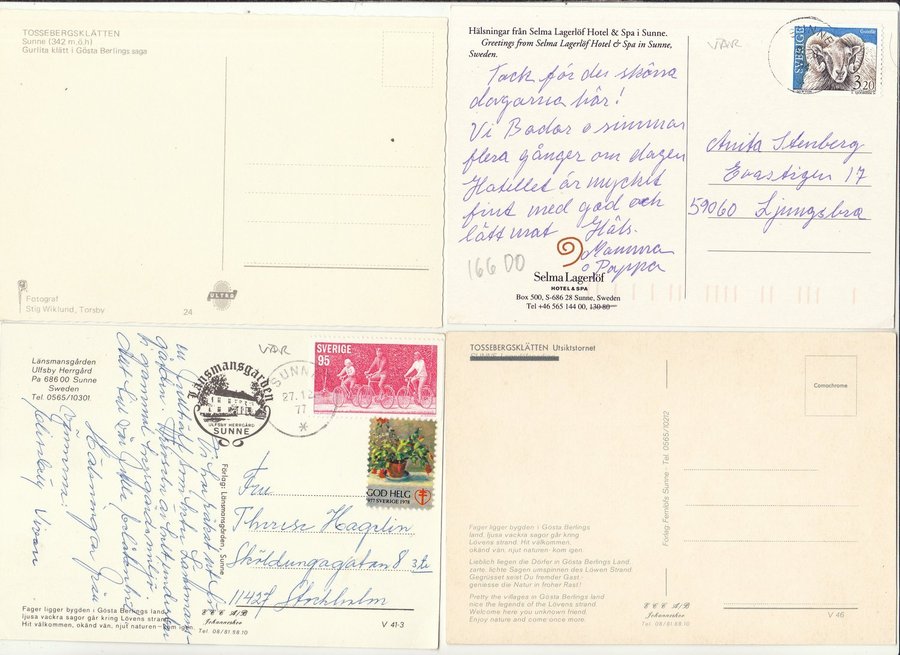 TOSSEBERGSKLÄTTEN
Sunne (342 m.ö.h)
Gurlita klätt i Gösta Berlings saga
Fotograf
Stig Wiklund, Torsby
24
ULTRA
Hälsningar från Selma Lagerlöf Hotel & Spa i Sunne.
Greetings from Selma Lagerlöf Hotel & Spa in Sunne,
Sweden.
VÄR
SVERIGE
3.20
Tack för de sköna
dagarna här!
Vi Badar o simmar
flera gånger om dagen
Hotellet är mycket
fint med god och
lätt mat
Häls-
Mamma
o Pappa
166 DO
Selma Lagerlöf
HOTEL & SPA
Box 500, S-686 28 Sunne, Sweden
Tel +46 565 144 00, 130 80
Anita Stenberg
Evastigen 17
59060 Ljungsbro
Länsmansgården
Ulfsby Herrgård
Pa 686 00 Sunne
Sweden
Tel. 0565/10301
VÄR
Länsmansgården
ULFSBY HERRGÅRD
SUNNE
SUNNE
77
SVERIGE
95
GOD HELG
1977 SVERIGE 1978
Förlag: Länsmansgården, Sunne
Fru
Therese Hagelin
Sköldungagatan 8 3tr
11427 Stockholm
Fager ligger bygden i Gösta Berlings land,
ljusa vackra sagor går kring Lövens strand.
Hit välkommen, okänd vän, njut naturen - kom igen.
E C C A/B
Johanneshov
Tel. 08/81 88 10
V 41-3
TOSSEBERGSKLÄTTEN Utsiktstornet
Comochrome
Förlag: Fernlöfs Sunne · Tel. 0565/10212
Fager ligger bygden i Gösta Berlings
land, ljusa vackra sagor går kring
Lövens strand. Hit välkommen,
okänd vän, njut naturen - kom igen.
Lieblich liegen die Dörfer in Gösta Berlings Land,
zarte, lichte Sagen umspinnen des Löwen Strand.
Gegrüsset seist Du fremder Gast -
geniesse die Natur in froher Rast!
Pretty the villages in Gösta Berlings land
nice the legends of the Lövens strand.
Welcome here you unknown friend.
Enjoy nature and come once more.
E C C A/B
Johanneshov
Tel. 08/81 88 10
V 46